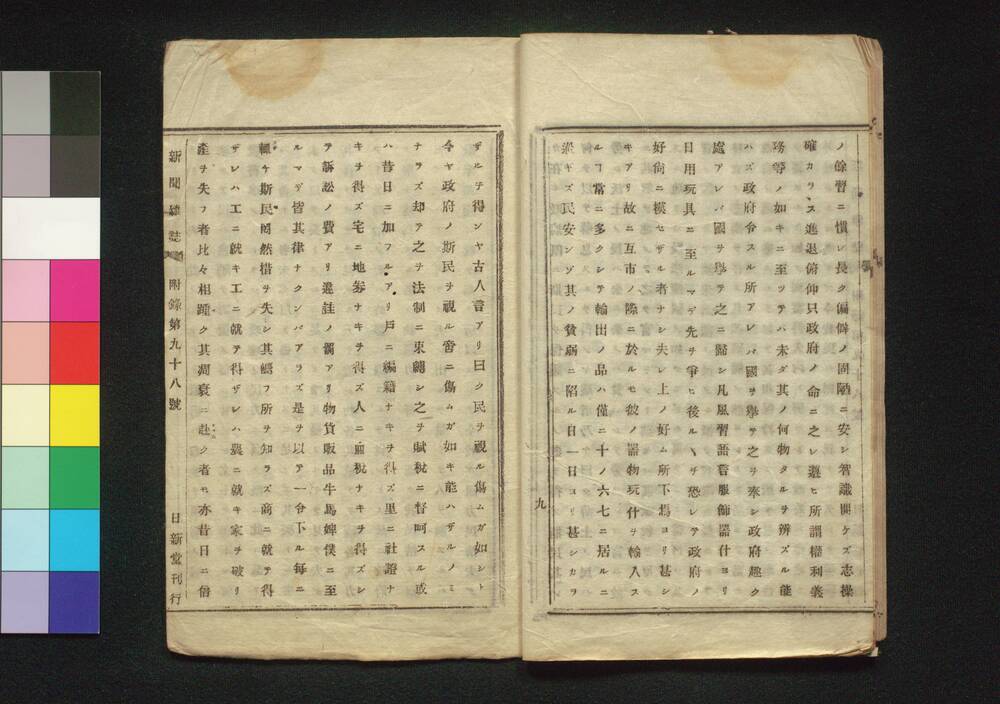 ノ餘習ニ慣レ長ク偏僻ノ固陋ニ安シ智識開ケズ志操
確カリス進退俯仰只政府ノ命ニ之レ遵ヒ所謂權利義
務等ノ如キニ至ツテハ未ダ其ノ何物タルヲ辨ズル能
ハズ政府令スル所アレバ國ヲ擧テ之ヲ奉シ政府趣ク
處アレバ國ヲ擧テ之ニ歸シ凡風習語言服飾器什ヨリ
日用玩具ニ至ルマデ先ヲ爭ヒ後ルヽヲ恐レテ政府ノ
好尙ニ模セザル者ナシ夫レ上ノ好ム所下焉ヨリ甚シ
キアリ故ニ互市ノ際ニ於ルモ彼ノ器物玩什ヲ輸入ス
ル丁常ニ多クシテ輸出ノ品ハ僅ニ十ノ六七ニ居ルニ
過ギズ民安ンゾ其ノ貧弱ニ陷ル日一日ヨリ甚シカラ
九
ザルヲ得ンヤ古人言アリ曰ク民ヲ視ル傷ムガ如シト
今ヤ政府ノ斯民ヲ視ル啻ニ傷ムガ如キ能ハザルノミ
ナラズ却テ之ヲ法制ニ束縛シ之ヲ賦稅ニ督呵スル或
ハ昔日ニ加フルアリ戶ニ編籍ナキヲ得ズ里ニ社證ナ
キヲ得ズ宅ニ地劵ナキヲ得ズ人ニ血稅ナキヲ得ズシ
テ訴訟ノ費アリ違註ノ罰アリ物貨販品牛馬婢僕ニ至
ルマデ皆其律ナクンバアラズ是ヲ以テ一令下ル每ニ
輒ケ斯民罔然惜ヲ失シ其嚮フ所ヲ知ラズ商ニ就テ得
ザレハ工ニ就キ工ニ就テ得ザレハ農ニ就キ家ヲ破リ
產ヲ失フ者比々相踵ク其凋衰ニ赴ク者モ亦昔日ニ倍
新聞雜誌 附錄第九十八號 日新堂刊行